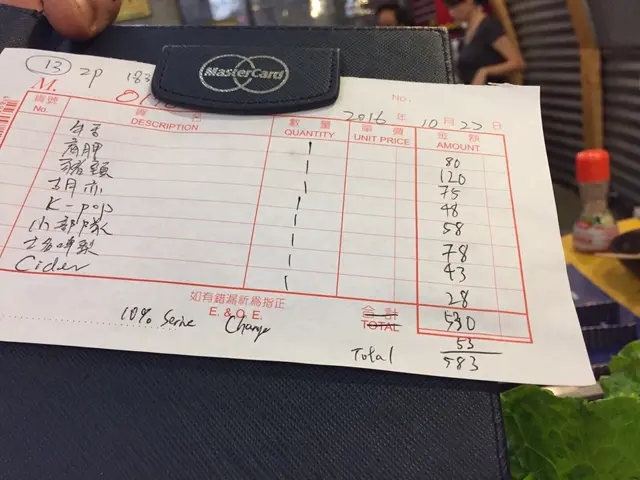 MasterCard
13 2P 183
M.
No.:
2016 年 10 月 22 日
貨號 No. DESCRIPTION 數量 QUANTITY 單價 UNIT PRICE 金額 AMOUNT
牛舌 1 80
1 120
豬頸 1 75
1 48
K-pop 1 58
小部隊 1 78
1 43
Cider 1 28
如有錯漏祈為指正
E. & O. E.
合計 TOTAL 530
10% Serive Charge 53
Total 583